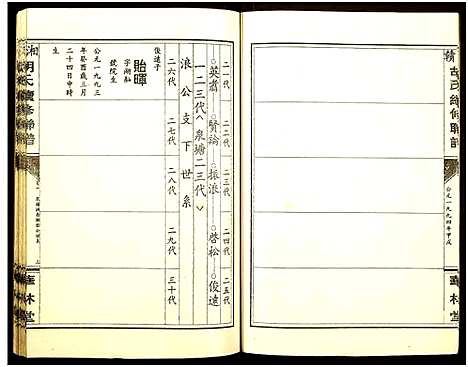 胡氏續修聯譜
公元一九九四年甲戌
華林堂
二一代 二二代 二三代 二四代 二五代
英肅 賢論 振浪 啓松 俊遠
一二三代︿泉塘二三代﹀
浪公支下世系
二六代 二七代 二八代 二九代 三十代
俊遠子
貽暉
字湖舩
號院生
公元一九九三
年癸酉歲三月
二十四日申時
湘
胡氏續修聯譜
華林堂